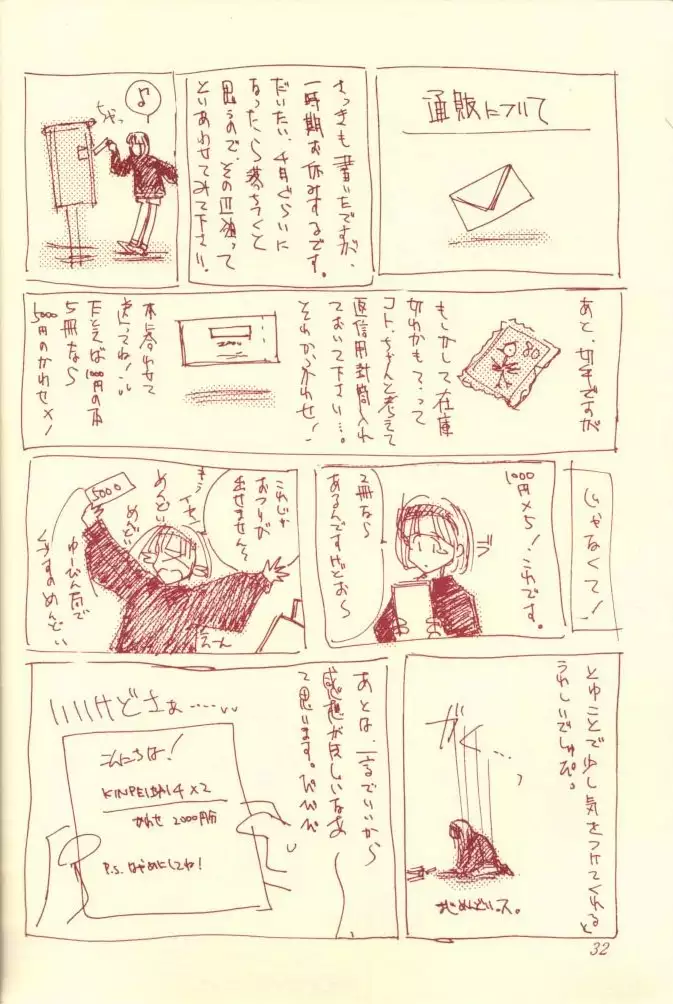 通販について
さっきも書いたですが、
一時期お休みするです。
だいたい、4月ぐらいに
なったら落ちつくと
思うので、その辺狙って
といあわせてみて下さい。
♪
あと、切手ですが
80
もしかして在庫
切れかもって
コト、ちゃんと考えて
返信用封筒入れ
ておいて下さい…。
それから、かわせ!
本に合わせて
送ってね!
たとえば1000円の本
5冊なら
5000円のかわせ×!
じゃなくて!
1000円×5!これです。
2冊なら
あるんですけどお〜
これじゃ
おつりが
出せません〜
5000
めんどい
めんどい
ゆーびん局で
くずすのめんどい
えーん
とゆことで少し気をつけてくれると
うれしいでしゅぴ。
がく…
あとは、一言でいいから
感想がほしいなあ
て思います。ぴぴぴ
いいけどさぁ……
こんにちは!
KINPEI 4×2
かわせ 2000円分
P.S. はやめにしてね!
32